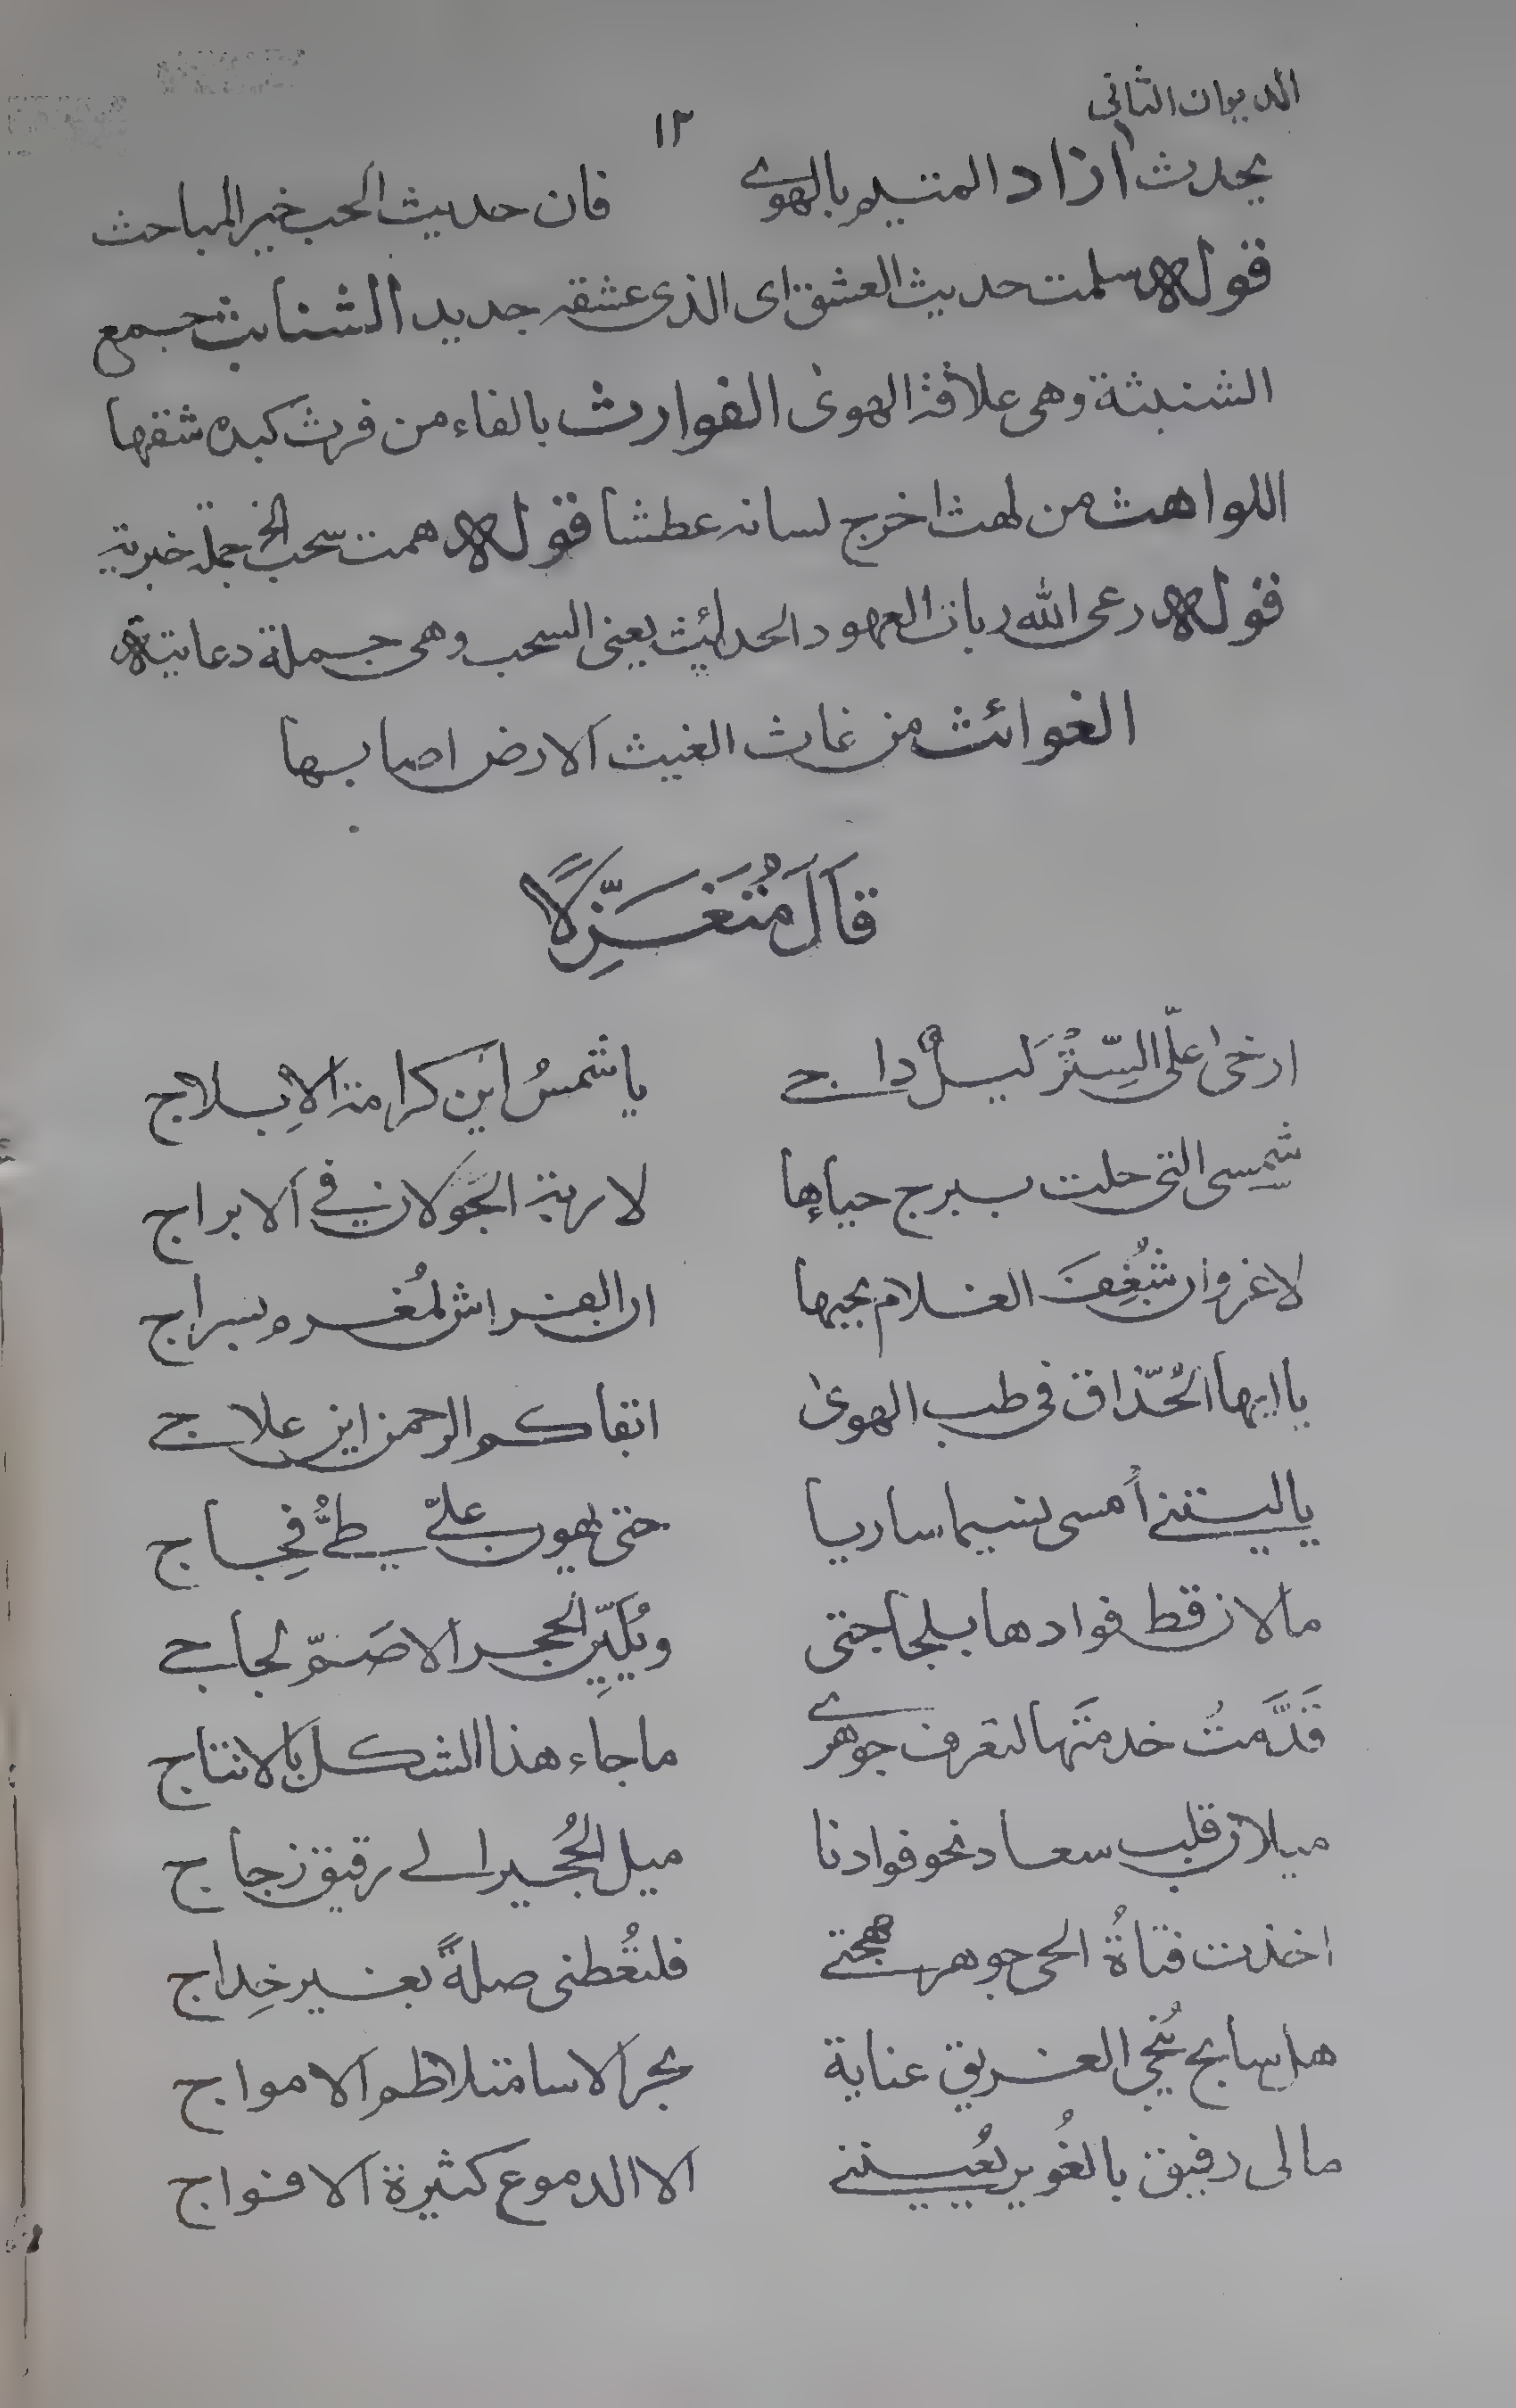 الديوان الثانى
١٣
يحدث ازاد المتيم بالهوى فان حديث الحب خير المباحث
قوله سلمت حديث العشق اى الذى عشقه جديد الشنابث جمع
الشنبثة وهى علاقة الهوى الفوارث بالفاء من فرث كبده شقها
اللواهث من لهث اخرج لسانه عطشا قوله همت سحب الخ جملة خبرية
قوله رعى الله ربات العهود الحدائث يعنى السحب وهى جملة دعائية
الغوائث من غاث الغيث الارض اصابها
قَالَ مُتَغَزِّلًا
ارخى علَى السِّتْرَ ليلٌ داج يا شمسُ اين كرامة الاِبلاج
شمسى التى حلت ببرج حياءها لا ربة الجَوَلان فى الابراج
لا غرو ان شُغِفَ الغلام بحبها ان الفراش لمُغرم بسراج
يا ايها الحُذّاق فى طب الهوى ابقاكم الرحمن اين علاج
يا ليتنى اُمسى نسيما ساريا حتى يهون علىّ طىُّ فِجاج
ما لان قط فوادها بلجاجتى ويُليِّن الحجر الاصَمّ لجاج
قَدَّمتُ خدمتَها لتعرف جوهرى ما جاء هذا الشكل بالانتاج
ميلان قلب سعاد نحو فوادنا ميل الحُجير الى رقيق زجاج
اخذت فتاةُ الحى جوهر مهجتى فلتُعطنى صلةً بغير خِداج
هل سابح يُنجى الغريق عناية بحر الاسا متلاطم الامواج
مالى رفيق بالغُوير يُعيننى الا الدموع كثيرة الافواج